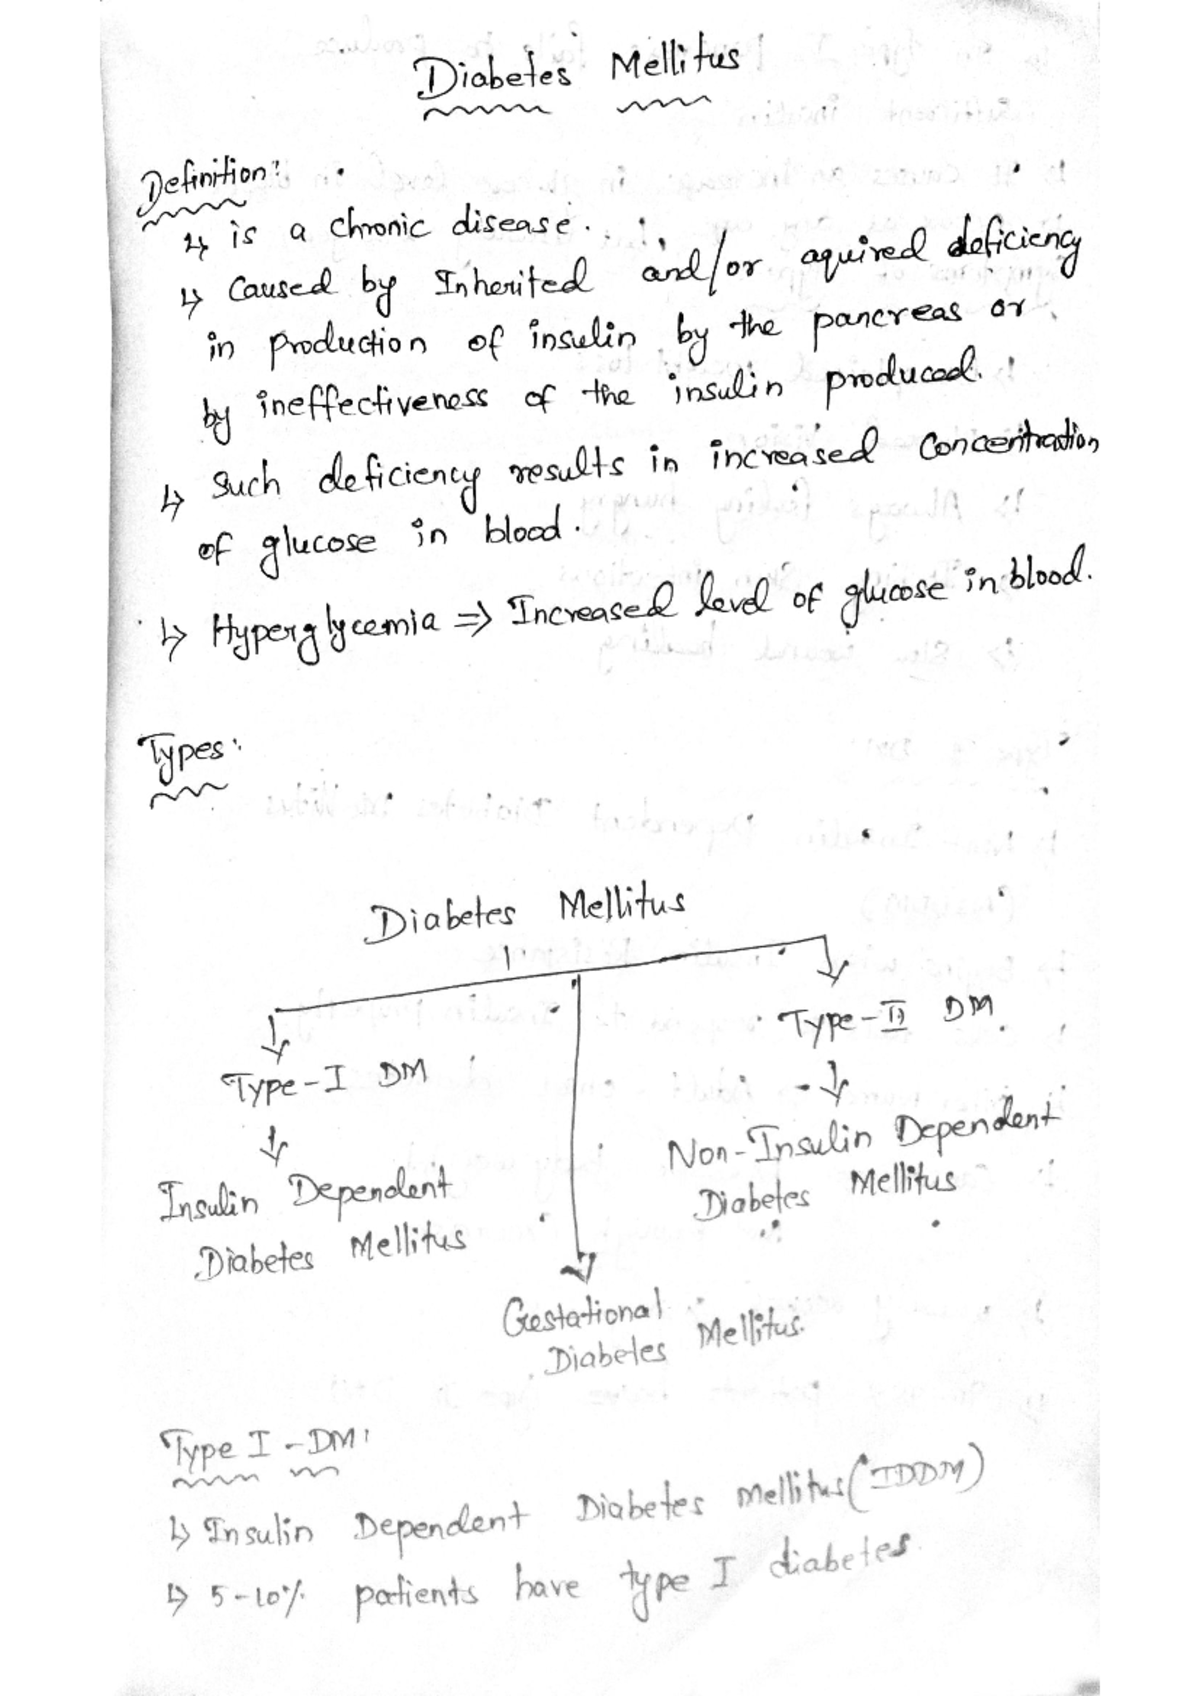 Diabetes Mellitus
Definition:
↳ is a chronic disease.
↳ Caused by Inherited and/or aquired deficiency
in production of insulin by the pancreas or
by ineffectiveness of the insulin produced.
↳ Such deficiency results in increased Concentration
of glucose in blood.
↳ Hyperglycemia ⇒ Increased level of glucose in blood.
Types:
Diabetes Mellitus
Type-I DM
Type-II DM
Insulin Dependent
Diabetes Mellitus
Non-Insulin Dependent
Diabetes Mellitus
Gestational
Diabetes Mellitus.
Type I - DM:
↳ Insulin Dependent Diabetes mellitus (IDDM)
↳ 5-10% patients have type I diabetes.